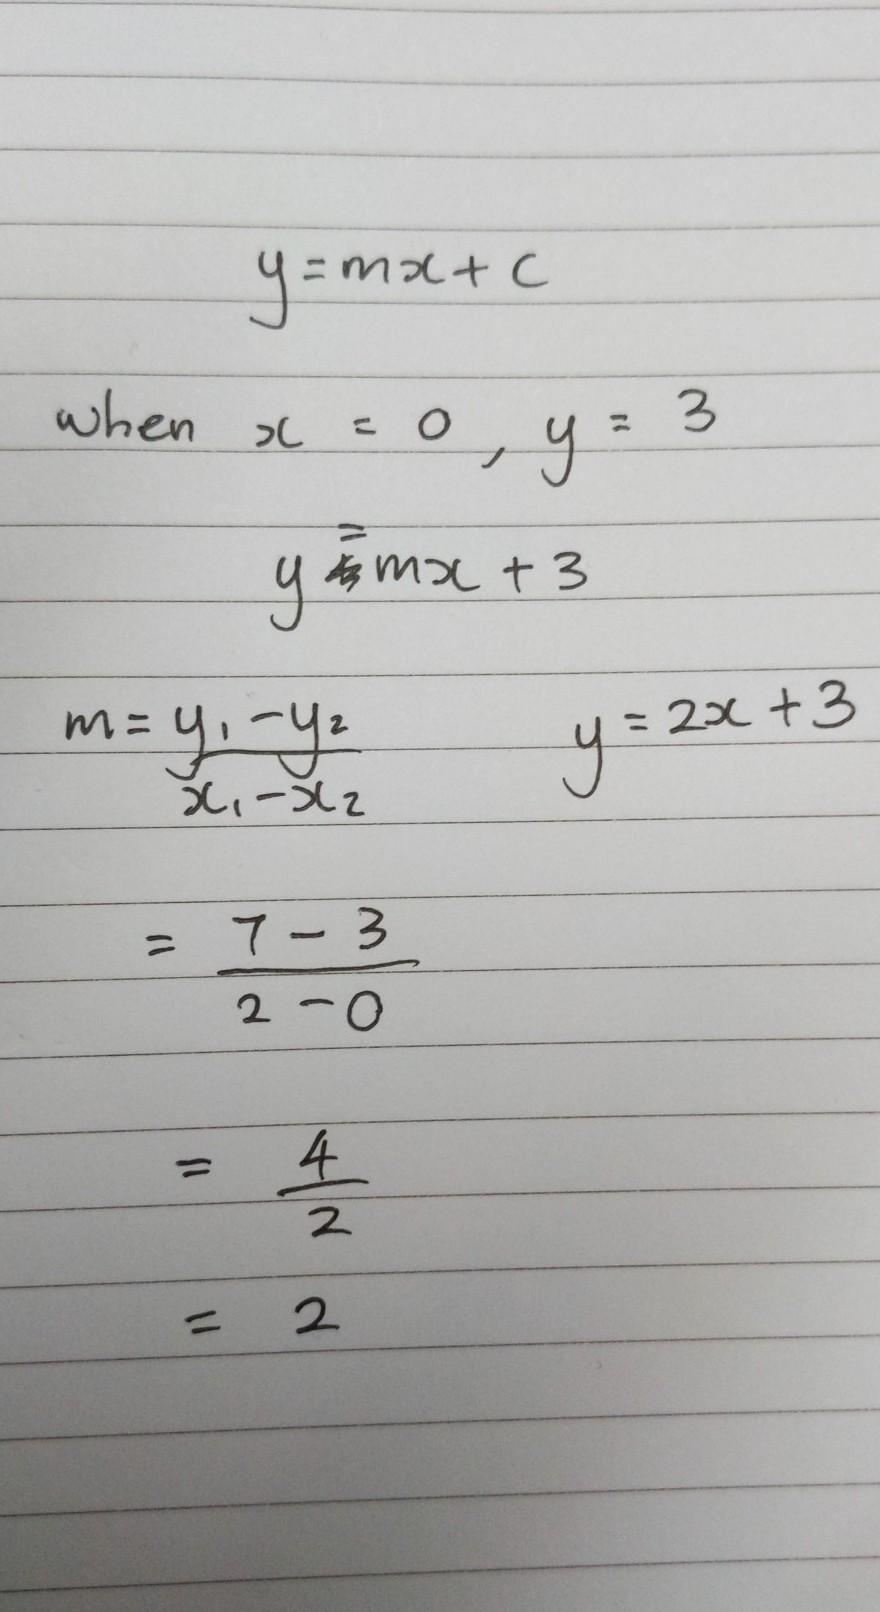 y = mx + c
when x = 0, y = 3
y = mx + 3
m = y₁ - y₂
x₁ - x₂
y = 2x + 3
= 7 - 3
2 - 0
= 4
2
= 2